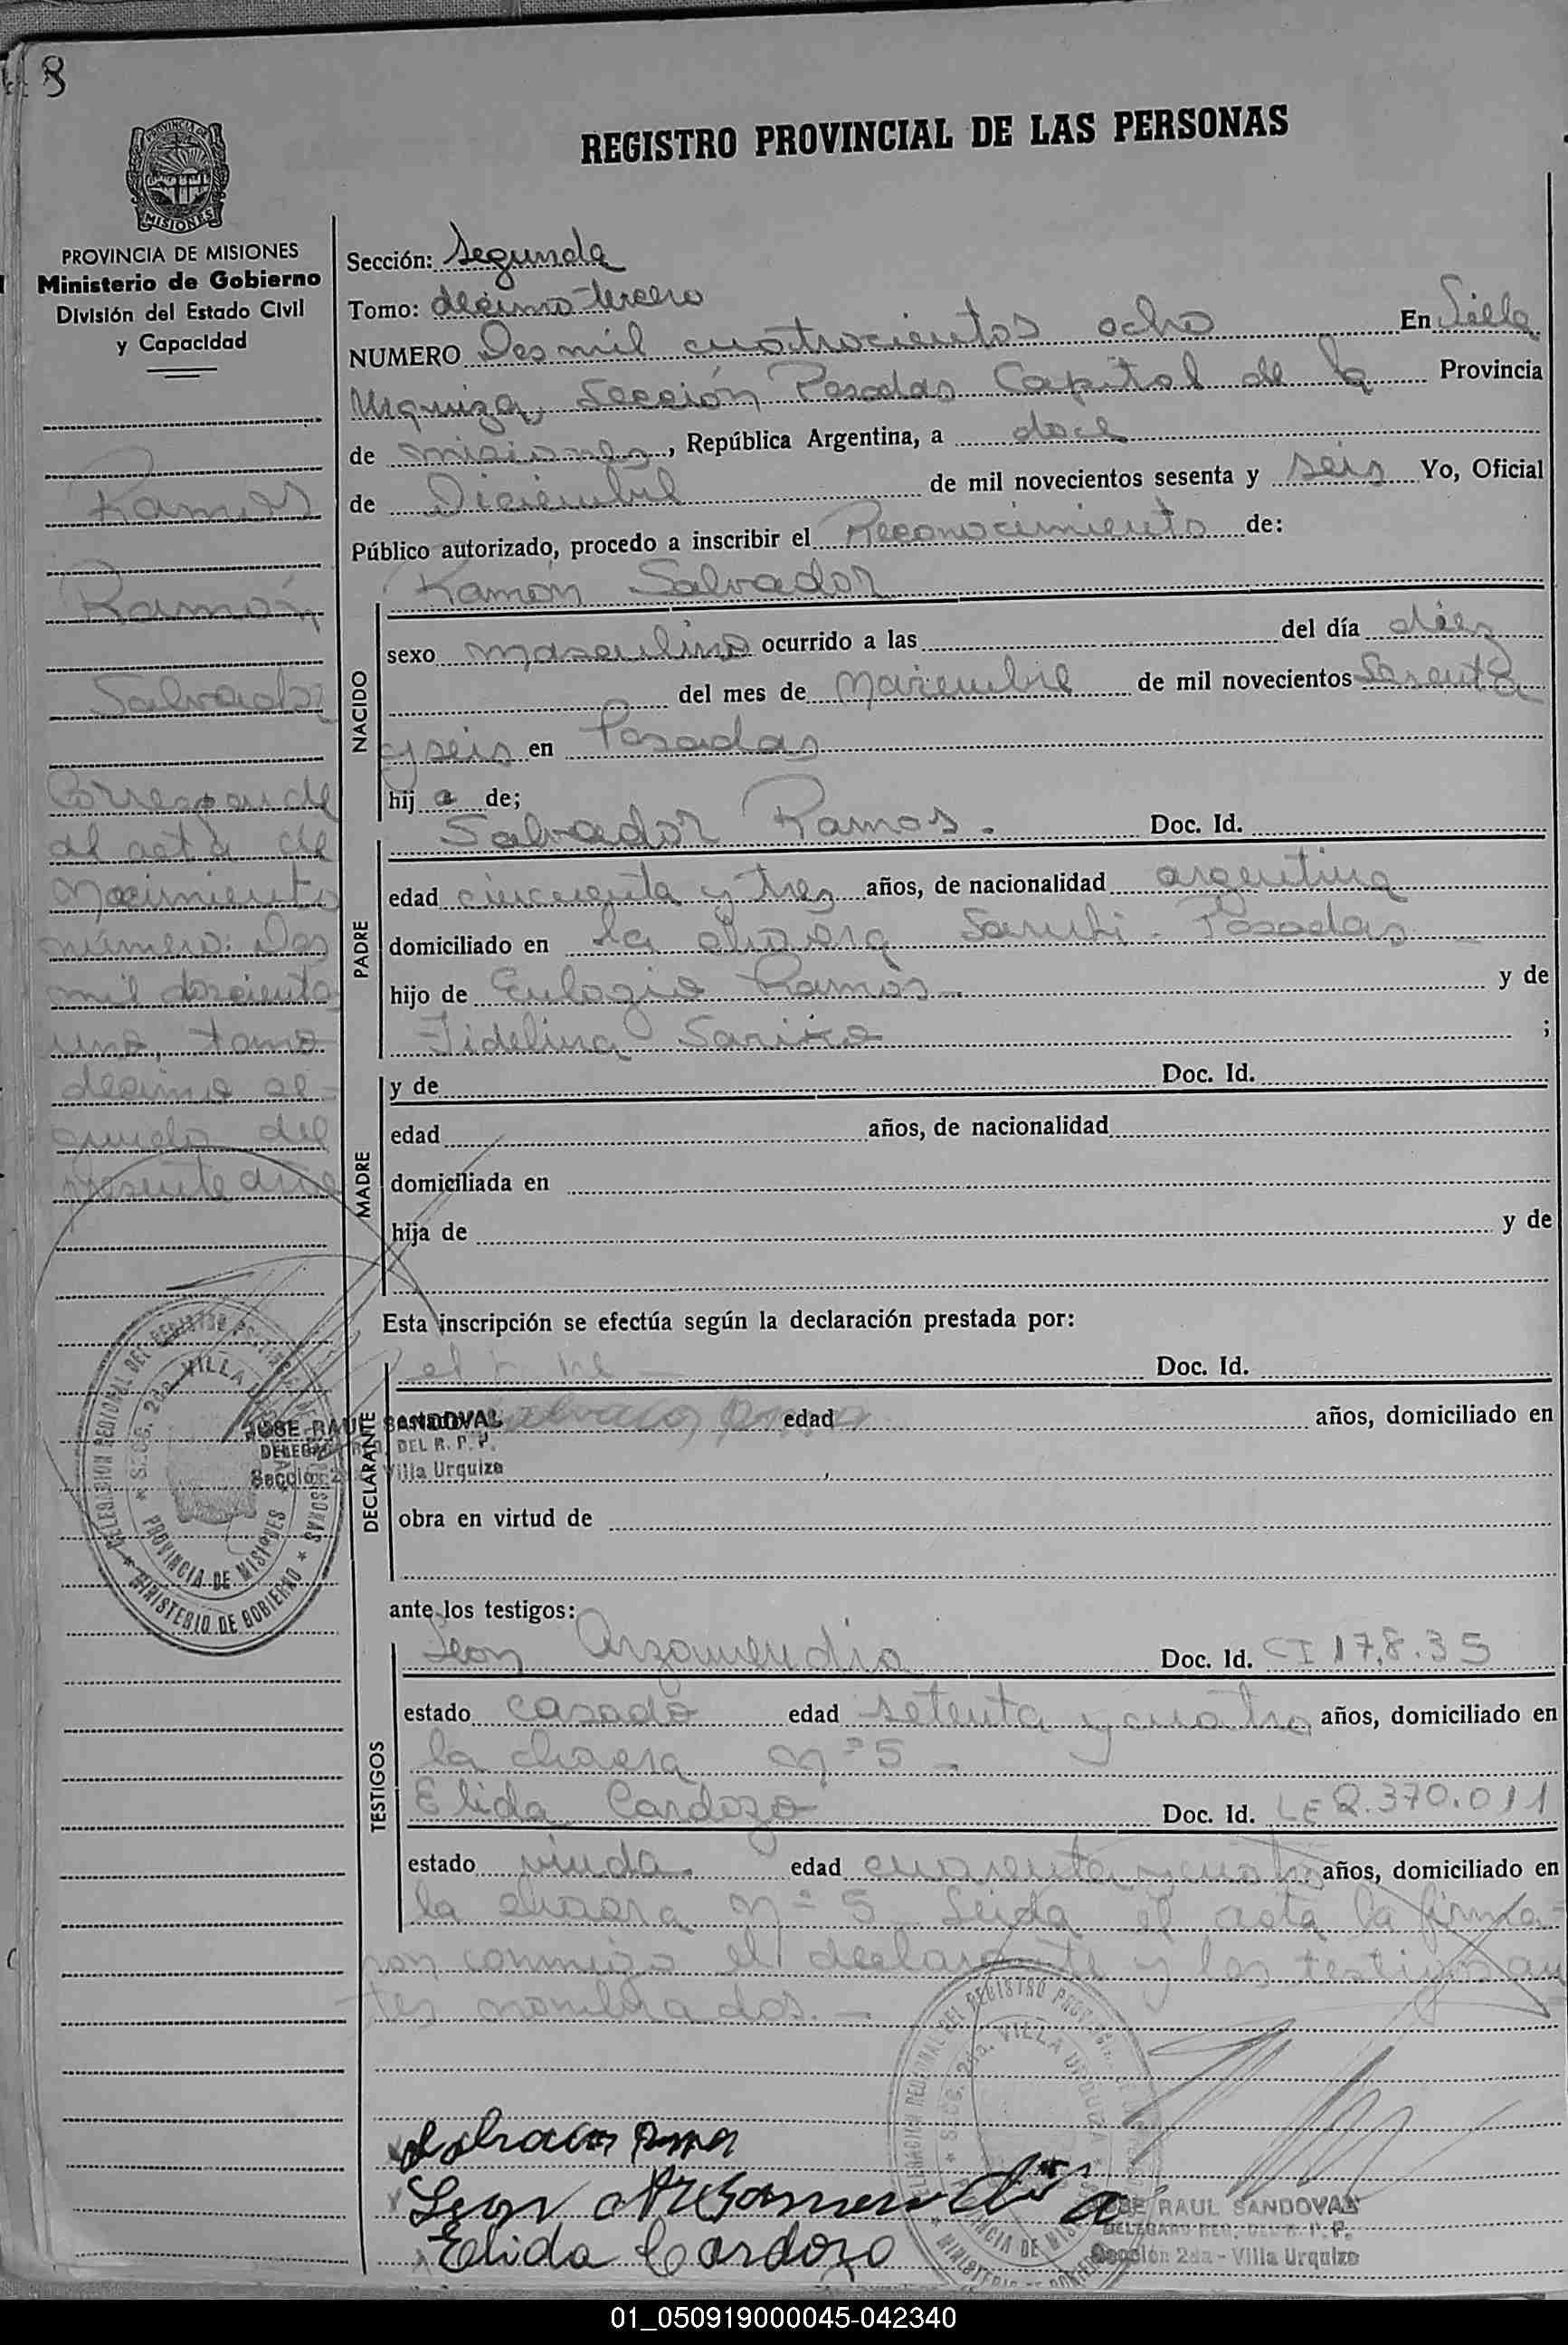 8
REGISTRO PROVINCIAL DE LAS PERSONAS
MISIONES
PROVINCIA DE MISIONES
Ministerio de Gobierno
División del Estado Civil
y Capacidad
Ramos
Ramón
Salvador
Corresponde
al acta de
Nacimiento
número: Dos
mil doscientos
uno, tomo
décimo se-
gundo del
presente año
Sección: Segunda
Tomo: décimo tercero
NUMERO Dos mil cuatrocientos ocho En Villa
Urquiza, Sección Posadas Capital de la Provincia
de misiones, República Argentina, a doce
de Diciembre de mil novecientos sesenta y seis Yo, Oficial
Público autorizado, procedo a inscribir el Reconocimiento de:
Ramón Salvador
NACIDO
sexo masculino ocurrido a las del día diez
del mes de Noviembre de mil novecientos Sesenta
y seis en Posadas
hij o de;
PADRE
Salvador Ramos. Doc. Id.
edad cincuenta y tres años, de nacionalidad argentina
domiciliado en la chacra - Posadas -
hijo de Eulogio Ramos y de
Fidelina ;
MADRE
y de Doc. Id.
edad años, de nacionalidad
domiciliada en
hija de y de
Esta inscripción se efectúa según la declaración prestada por:
DECLARANTE
Doc. Id.
estado edad años, domiciliado en
obra en virtud de
JOSE RAUL SANDOVAL
DELEGADO REG. DEL R. P. P.
Sección 2da - Villa Urquiza
DELEGACION REGIONAL DEL REGISTRO PROVINCIAL DE LAS PERSONAS
* SECC. 2da. VILLA URQUIZA *
PROVINCIA DE MISIONES
* MINISTERIO DE GOBIERNO *
ante los testigos:
TESTIGOS
Leon Arzamendia Doc. Id. CI 17.8.35
estado casado edad setenta y cuatro años, domiciliado en
la chacra Nº 5 -
Elida Cardozo Doc. Id. LE 2.370.011
estado viuda. edad cuarenta y cuatro años, domiciliado en
la chacra Nº 5 Leida el acta la firma-
ron conmigo el declarante y los testigos an
tes nombrados. -
DELEGACION REGIONAL DEL REGISTRO PROVINCIAL DE
* SECC. 2da. VILLA URQUIZA *
PROVINCIA DE MISIONES
* MINISTERIO DE GOBIERNO
Leon Arzamendia
Elida Cardozo
JOSE RAUL SANDOVAL
DELEGADO REG. DEL R. P. P.
Sección 2da - Villa Urquiza
01_050919000045-042340